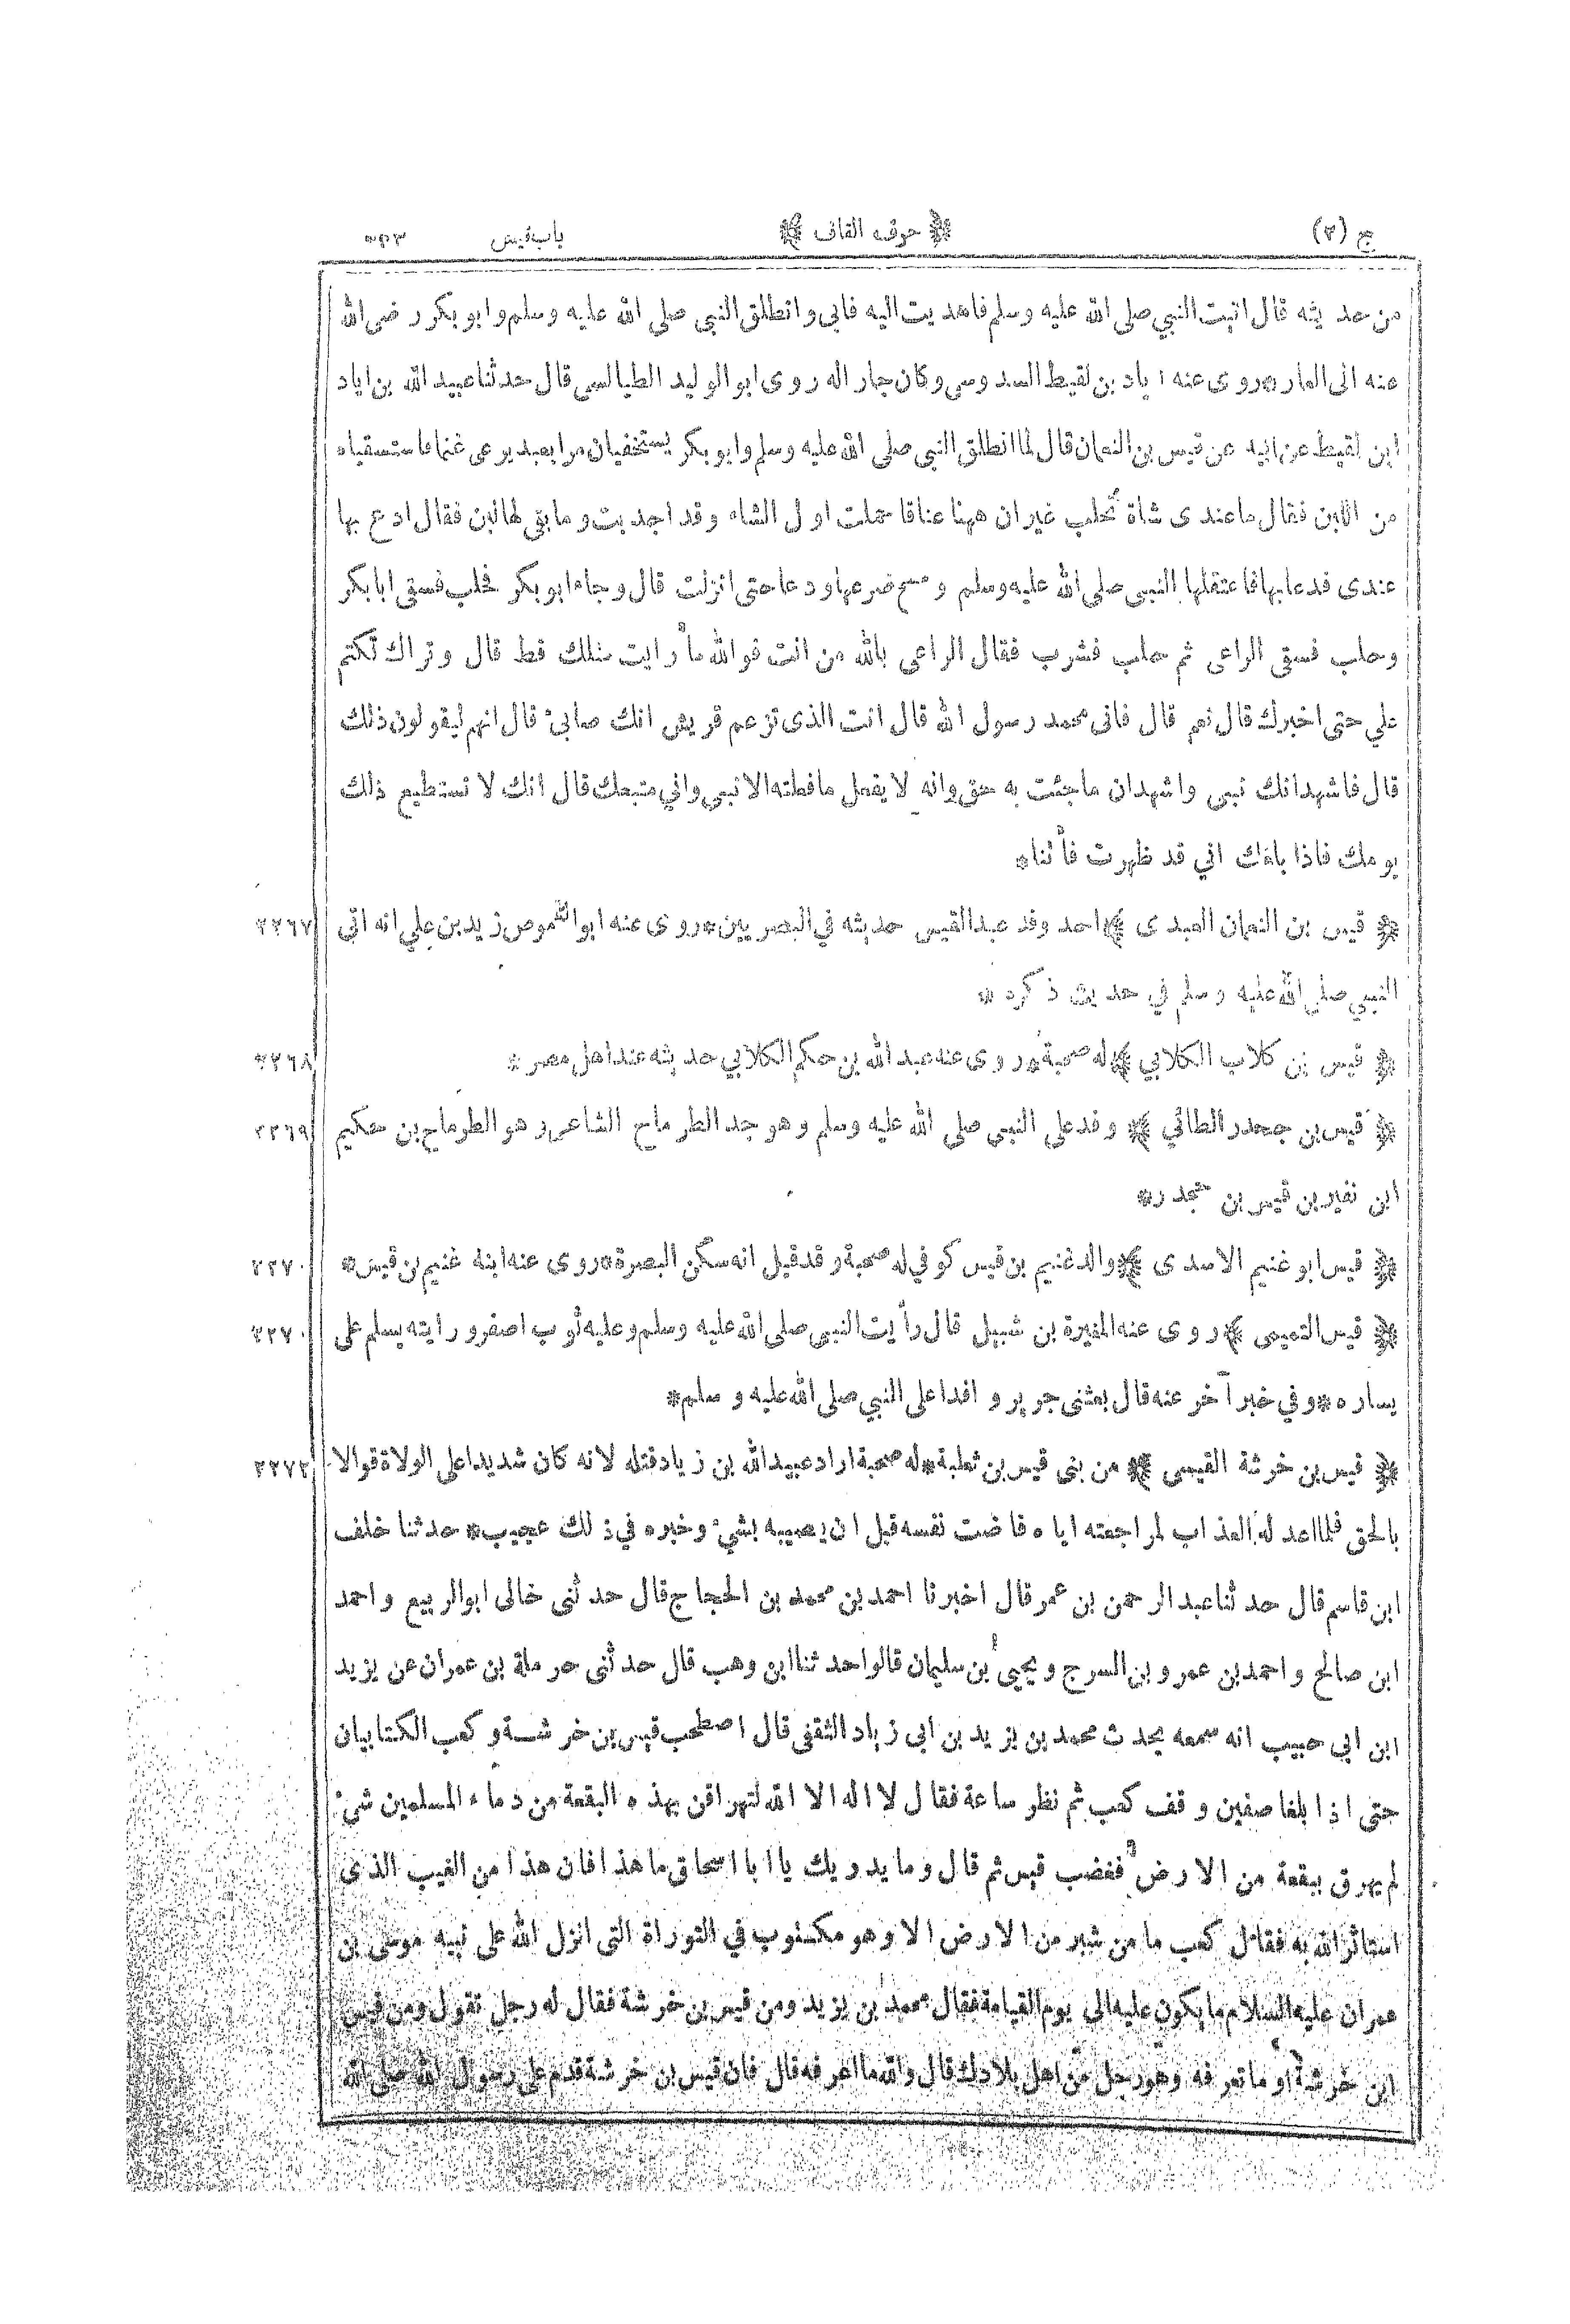 ج (٢) ﴿ حرف القاف ﴾ باب قيس ٥٣٣
من حديثه قال اتيت النبي صلى الله عليه وسلم فاهديت اليه فابى وانطلق النبي صلى الله عليه وسلم وابو بكر رضى الله
عنه الى الغار * روى عنه اياد بن لقيط السدوسي وكان جارا له روى ابو الوليد الطيالسي قال حدثنا عبيد الله بن اياد
ابن لقيط عن ابيه عن قيس بن النعمان قال لما انطلق النبي صلى الله عليه وسلم وابو بكر يستخفيان مرا بعبد يرعى غنما فاستسقياه
من اللبن فقال ما عندى شاة تحلب غير ان ههنا عناقا حملت اول الشاء وقد اجدبت وما بقى لها لبن فقال ادع بها
عندى فدعا بها فاعتقلها النبي صلى الله عليه وسلم ومسح ضرعها ودعا حتى انزلت قال وجاء ابو بكر فحلب فسقى ابا بكر
وحلب فسقى الراعى ثم حلب فشرب فقال الراعى بالله من انت فوالله ما رايت مثلك قط قال وتراك تكتم
علي حتى اخبرك قال نعم قال فانى محمد رسول الله قال انت الذى تزعم قريش انك صابئ قال انهم ليقولون ذلك
قال فاشهد انك نبى واشهد ان ما جئت به حق وانه لا يفعل ما فعلته الا نبى واني متبعك قال انك لا تستطيع ذلك
يومك فاذا بلغك اني قد ظهرت فأتنا *
﴿ قيس بن النعمان العبدى ﴾ احد وفد عبد القيس حديثه في البصريين * روى عنه ابو القموص زيد بن علي انه اتى ٢٢٦٧
النبي صلى الله عليه وسلم في حديث ذكره *
﴿ قيس بن كلاب الكلابي ﴾ له صحبة * روى عنه عبد الله بن حكيم الكلابي حديثه عند اهل مصر * ٢٢٦٨
﴿ قيس بن جحدر الطائي ﴾ وفد على النبي صلى الله عليه وسلم وهو جد الطرماح الشاعر وهو الطرماح بن حكيم ٢٢٦٩
ابن نفير بن قيس بن جحدر *
﴿ قيس ابو غنيم الاسدى ﴾ والد غنيم بن قيس كوفي له صحبة وقد قيل انه سكن البصرة * روى عنه ابنه غنيم بن قيس * ٢٢٧٠
﴿ قيس التميمى ﴾ روى عنه المغيرة بن شبيل قال رأيت النبي صلى الله عليه وسلم وعليه ثوب اصفر ورايته يسلم على ٢٢٧٠
يساره * وفي خبر آخر عنه قال بعثنى جرير وافدا على النبي صلى الله عليه وسلم *
﴿ قيس بن خرشة القيسى ﴾ من بنى قيس بن ثعلبة * له صحبة اراد عبيد الله بن زياد قتله لانه كان شديدا على الولاة قوالا ٢٢٧٢
بالحق فلما اعد له العذاب لمراجعته اياه فاضت نفسه قبل ان يصيبه بشيء وخبره في ذلك عجيب * حدثنا خلف
ابن قاسم قال حدثنا عبد الرحمن بن عمر قال اخبرنا احمد بن محمد بن الحجاج قال حدثنى خالى ابو الربيع واحمد
ابن صالح واحمد بن عمرو بن السرج ويحيى بن سليمان قالوا حدثنا ابن وهب قال حدثنى حرملة بن عمران عن يزيد
ابن ابي حبيب انه سمعه يحدث محمد بن يزيد بن ابى زياد الثقفى قال اصطحب قيس بن خرشة وكعب الكتابيان
حتى اذا بلغا صفين وقف كعب ثم نظر ساعة فقال لا اله الا الله لتهراقن بهذه البقعة من دماء المسلمين شئ
لم يهرق ببقعة من الارض فغضب قيس ثم قال وما يدريك يا ابا اسحاق ما هذا فان هذا من الغيب الذى
استاثر الله به فقال كعب ما من شبر من الارض الا وهو مكتوب في التوراة التى انزل الله على نبيه موسى بن
عمران عليه السلام ما يكون عليه الى يوم القيامة فقال محمد بن يزيد ومن قيس بن خرشة فقال له رجل تقول ومن قيس
ابن خرشة او ما تعرفه وهو رجل من اهل بلادك قال والله ما اعرفه قال فان قيس بن خرشة قدم على رسول الله صلى الله